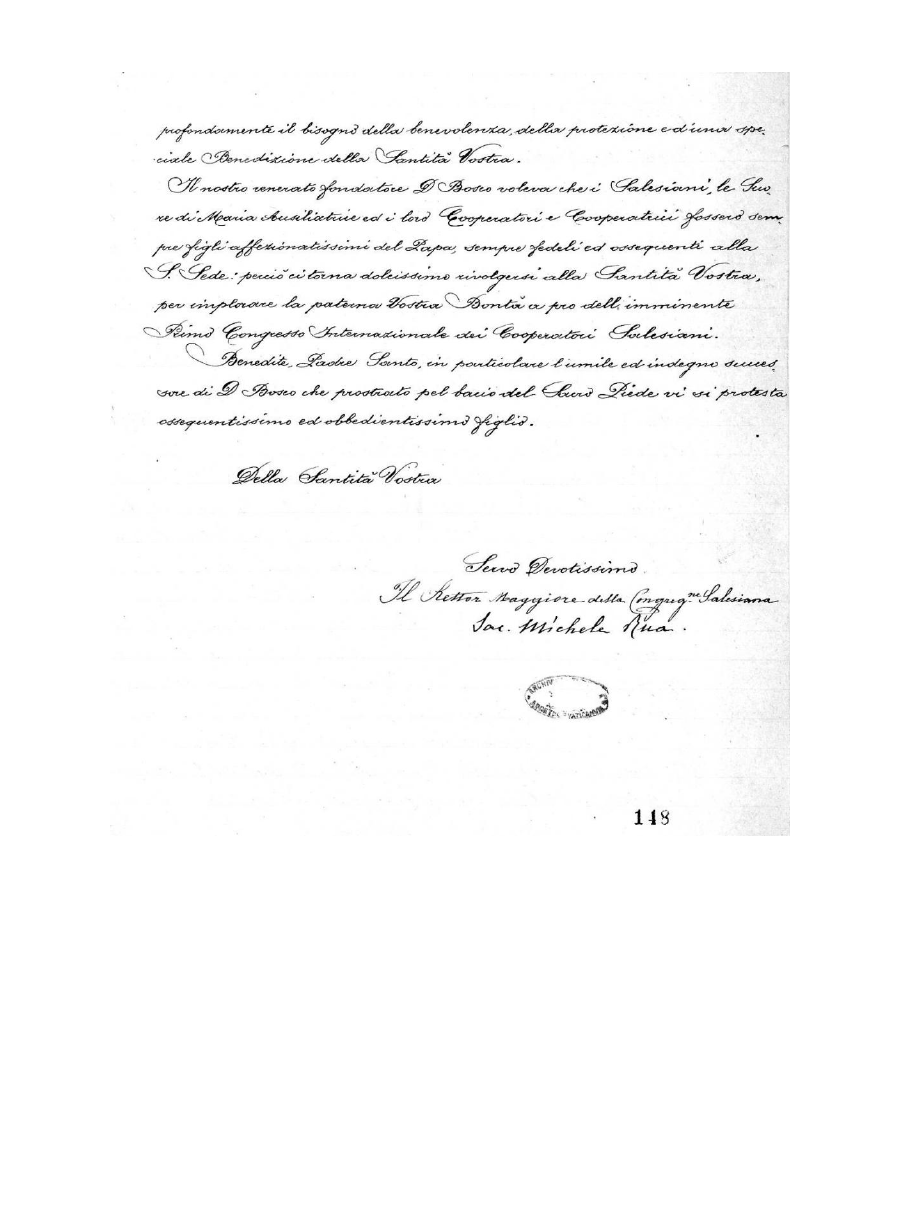 profondamente il bisogno della benevolenza, della protezione e d'una spe-
ciale Benedizione della Santità Vostra.
Il nostro venerato fondatore D Bosco voleva che i Salesiani, le Suo-
re di Maria Ausiliatrice ed i loro Cooperatori e Cooperatrici fossero sem-
pre figli affezionatissimi del Papa, sempre fedeli ed ossequenti alla
S. Sede: perciò ci torna dolcissimo rivolgersi alla Santità Vostra,
per implorare la paterna Vostra Bontà a pro dell'imminente
Primo Congresso Internazionale dei Cooperatori Salesiani.
Benedite, Padre Santo, in particolare l'umile ed indegno succes-
sore di D Bosco che prostrato pel bacio del Sacro Piede vi si protesta
ossequentissimo ed obbedientissimo figlio.
Della Santità Vostra
Servo Devotissimo
Il Rettor Maggiore della Congreg.ne Salesiana
Sac. Michele Rua.
ARCHIV
VATICANVM
148